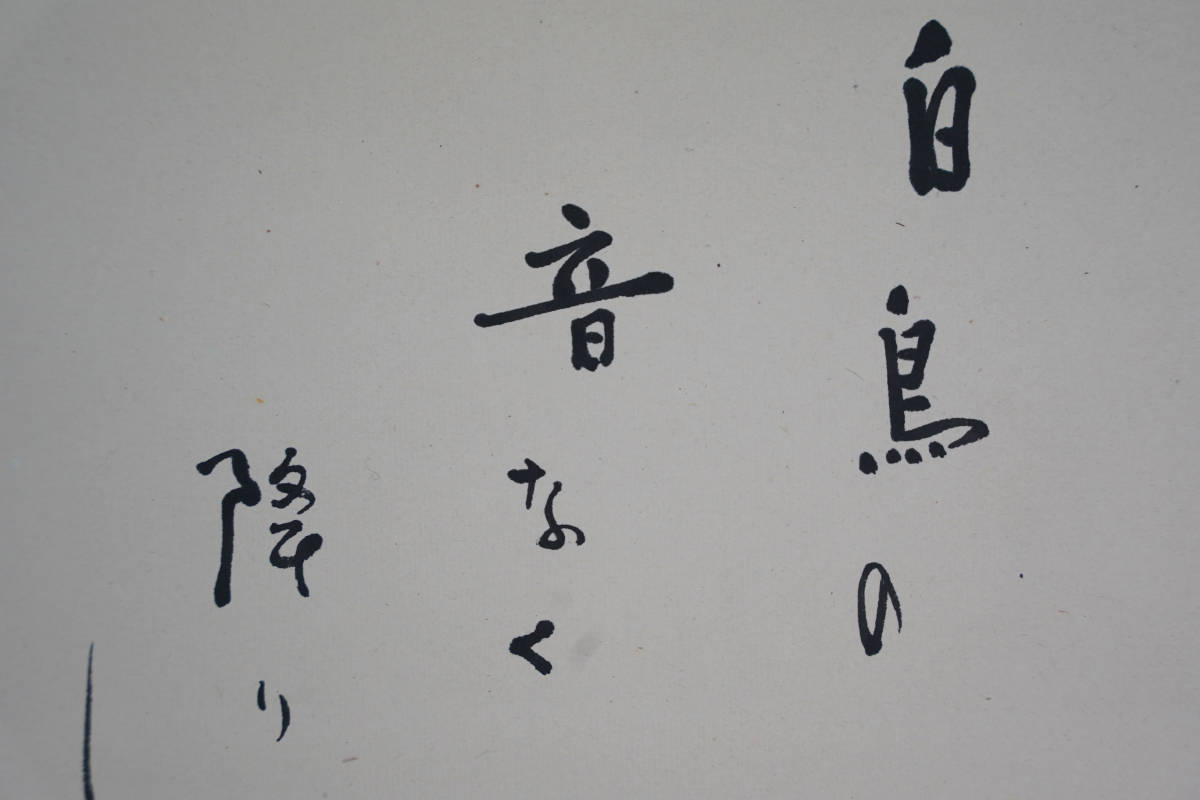 白鳥の
音なく
降り